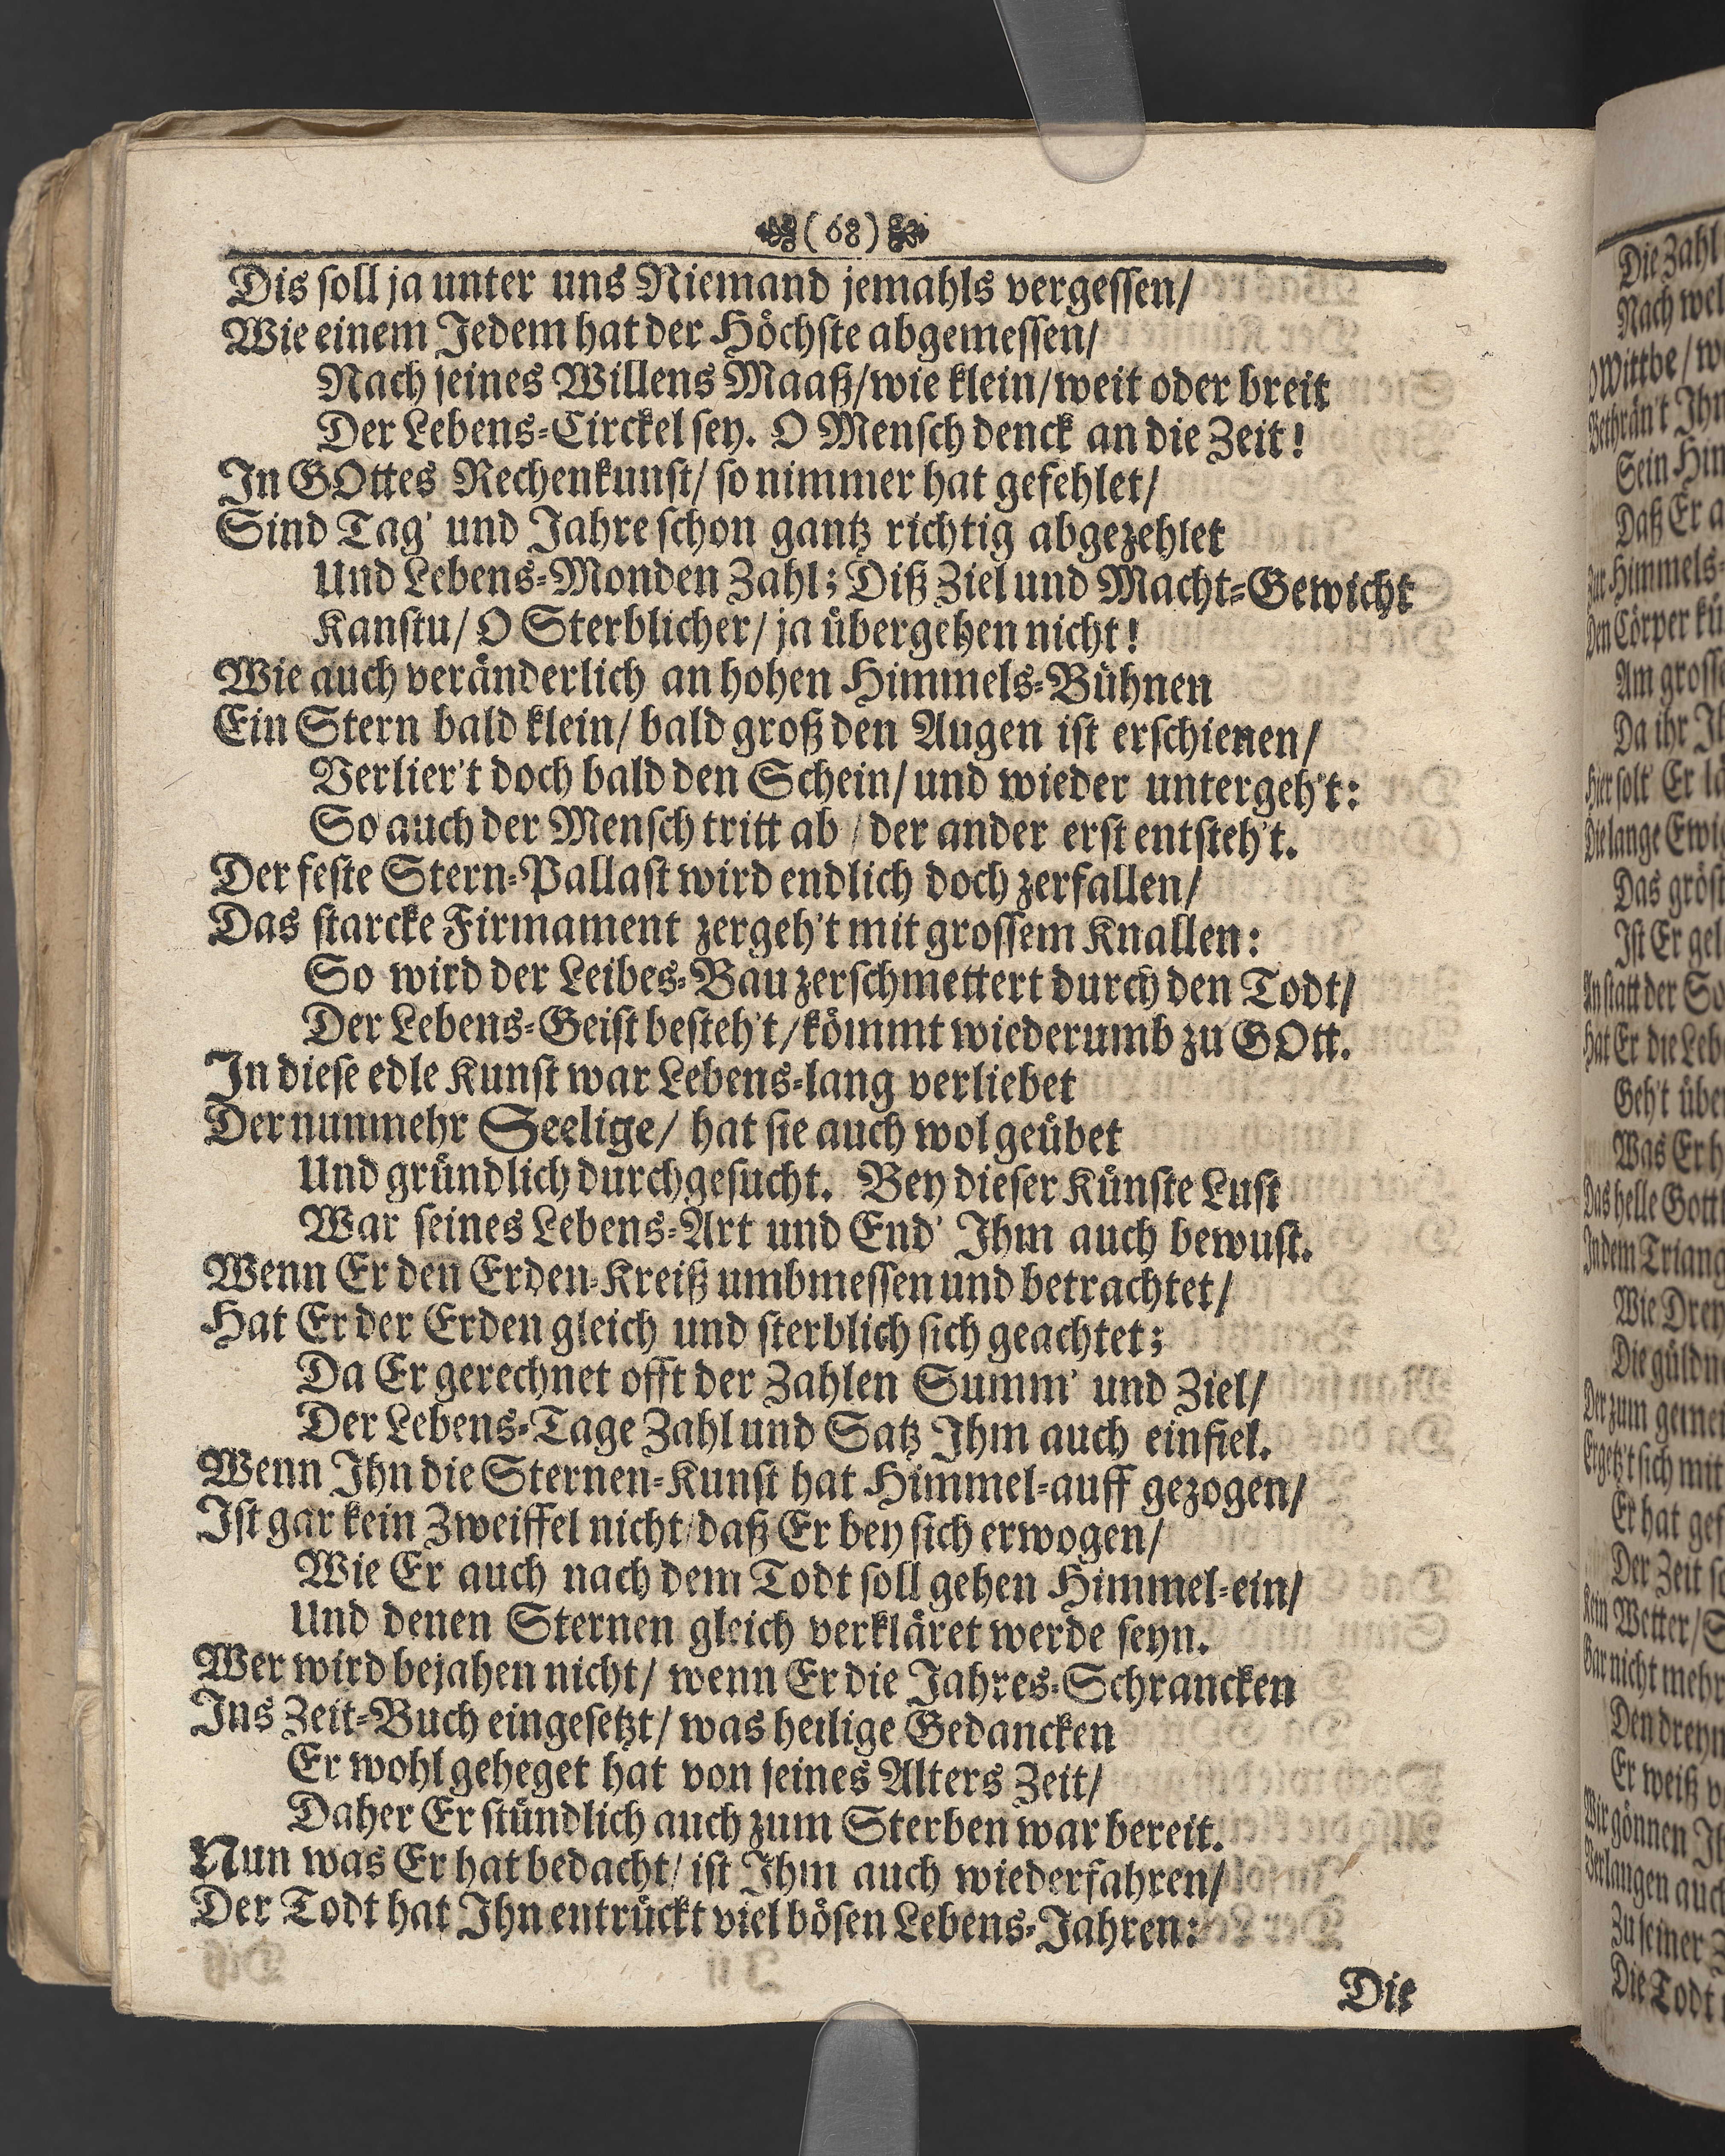 (68)
Dis soll ja unter uns Niemand jemahls vergessen/
Wie einem Jedem hat der Höchste abgemessen/
Nach seines Willens Maaß/wie klein/weit oder breit
Der Lebens-Circkel sey. O Mensch denck an die Zeit!
In GOttes Rechenkunst/ so nimmer hat gefehlet/
Sind Tag' und Jahre schon gantz richtig abgezehlet
Und Lebens-Monden Zahl; Diß Ziel und Macht-Gewicht
Kanstu/ O Sterblicher/ ja übergehen nicht!
Wie auch veränderlich an hohen Himmels-Bühnen
Ein Stern bald klein/ bald groß den Augen ist erschienen/
Verlier't doch bald den Schein/ und wieder untergeh't:
So auch der Mensch tritt ab / der ander erst entsteh't.
Der feste Stern-Pallast wird endlich doch zerfallen/
Das starcke Firmament zergeh't mit grossem Knallen:
So wird der Leibes-Bau zerschmettert durch den Todt/
Der Lebens-Geist besteh't/kömmt wiederumb zu GOtt.
In diese edle Kunst war Lebens-lang verliebet
Der nunmehr Seelige/ hat sie auch wol geübet
Und gründlich durchgesucht. Bey dieser Künste Lust
War seines Lebens-Art und End' Ihm auch bewust.
Wenn Er den Erden-Kreiß umbmessen und betrachtet/
Hat Er der Erden gleich und sterblich sich geachtet;
Da Er gerechnet offt der Zahlen Summ' und Ziel/
Der Lebens-Tage Zahl und Satz Ihm auch einfiel.
Wenn Ihn die Sternen-Kunst hat Himmel-auff gezogen/
Ist gar kein Zweiffel nicht/daß Er bey sich erwogen/
Wie Er auch nach dem Todt soll gehen Himmel-ein/
Und denen Sternen gleich verkläret werde seyn.
Wer wird bejahen nicht/ wenn Er die Jahres-Schrancken
Ins Zeit-Buch eingesetzt/ was heilige Gedancken
Er wohl geheget hat von seines Alters Zeit/
Daher Er stündlich auch zum Sterben war bereit.
Nun was Er hat bedacht/ ist Ihm auch wiederfahren/
Der Todt hat Ihn entrückt viel bösen Lebens-Jahren:
Die
Die Zahl
Nach wel
O Wittbe/ w
Bethrän't Ihr
Sein Him
Daß Er a
Zur Himmels-
Den Cörper kü
Am grosse
Da ihr Ih
Hier solt' Er lä
Die lange Ewig
Das gröst
Ist Er gel
An statt der So
Hat Er die Leb
Geh't über
Was Er h
Das helle Gottl
In dem Triang
Wie Drey
Die güldn
Der zum gemei
Ergetz't sich mit
Er hat gef
Der Zeit so
Kein Wetter/ S
Gar nicht mehr
Den dreyn
Er weiß v
Wir gönnen Ih
Verlangen auch
Zu seiner Z
Die Todt